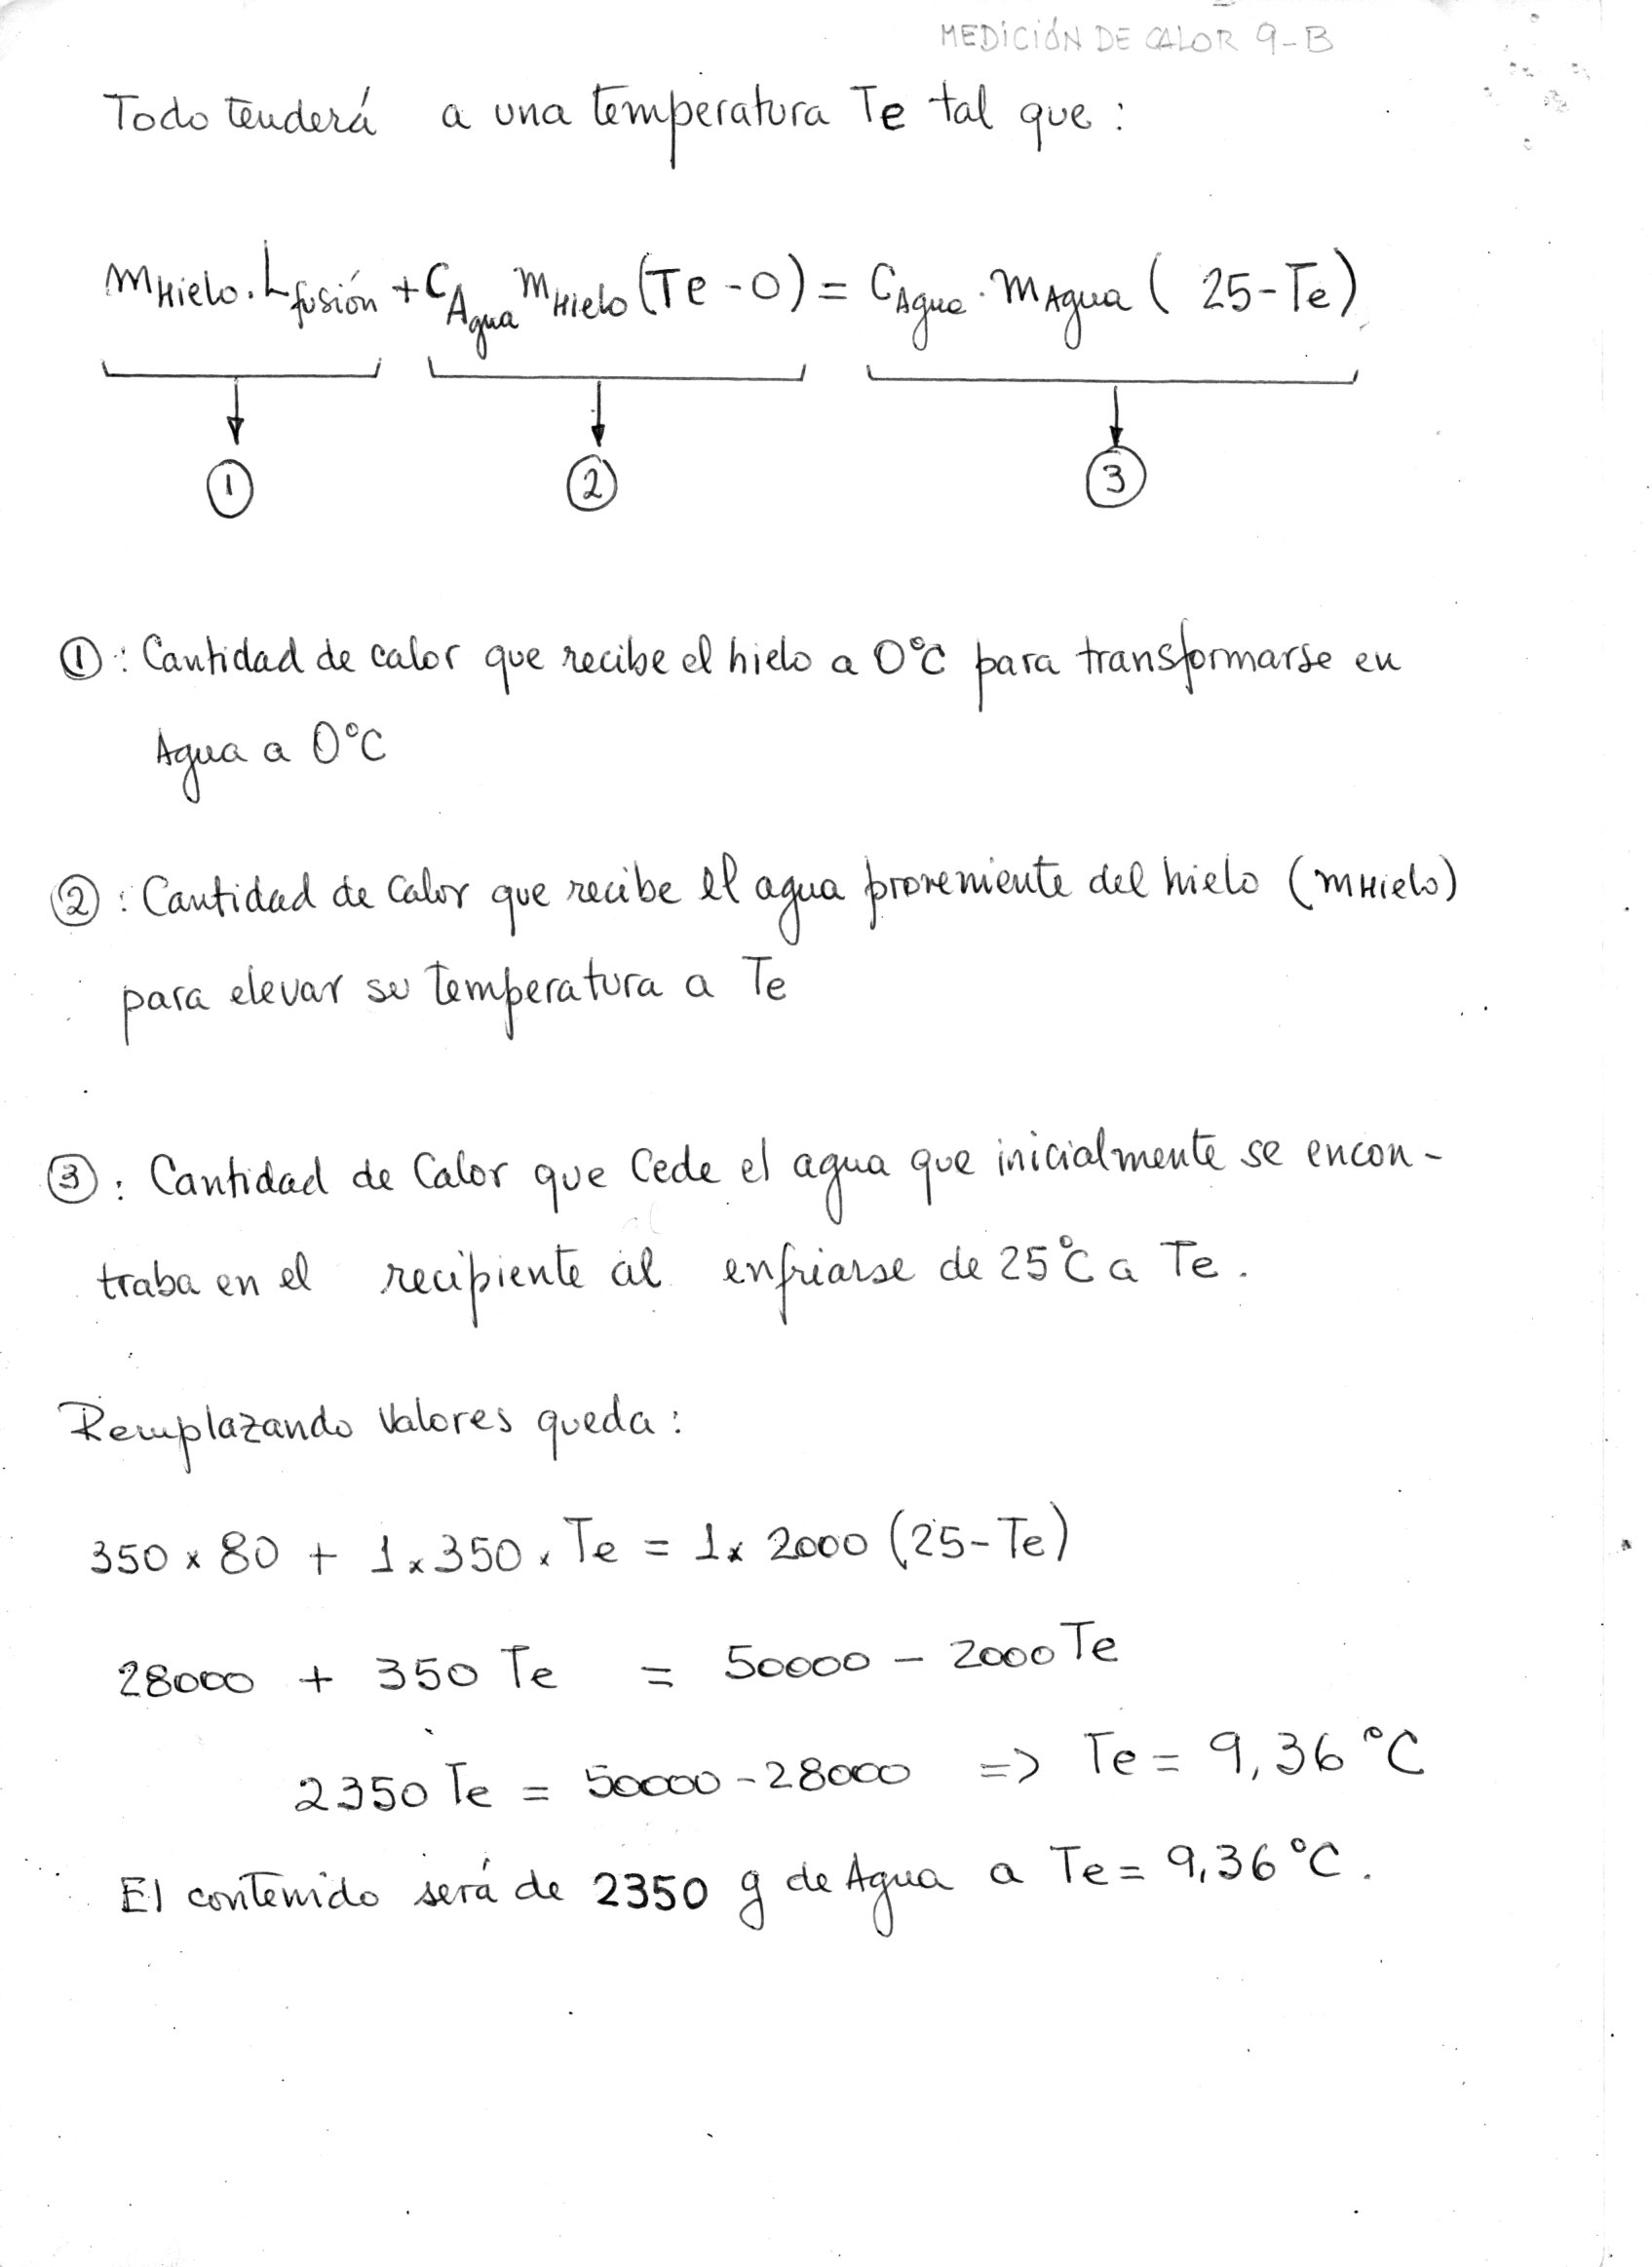 MEDICIÓN DE CALOR 9-B
Todo tenderá a una temperatura Te tal que:
mHielo. Lfusión + CAgua mHielo (Te - 0) = CAgua . mAgua ( 25 - Te)
1 2 3
①: Cantidad de calor que recibe el hielo a 0°C para transformarse en
Agua a 0°C
②: Cantidad de Calor que recibe el agua proveniente del hielo (mHielo)
para elevar su temperatura a Te
③: Cantidad de Calor que Cede el agua que inicialmente se encon-
traba en el recipiente al enfriarse de 25°C a Te.
Remplazando Valores queda:
350 x 80 + 1 x 350 x Te = 1 x 2000 (25-Te)
28000 + 350 Te = 50000 - 2000 Te
2350 Te = 50000 - 28000 => Te = 9,36 °C
El contenido será de 2350 g de Agua a Te = 9,36 °C.